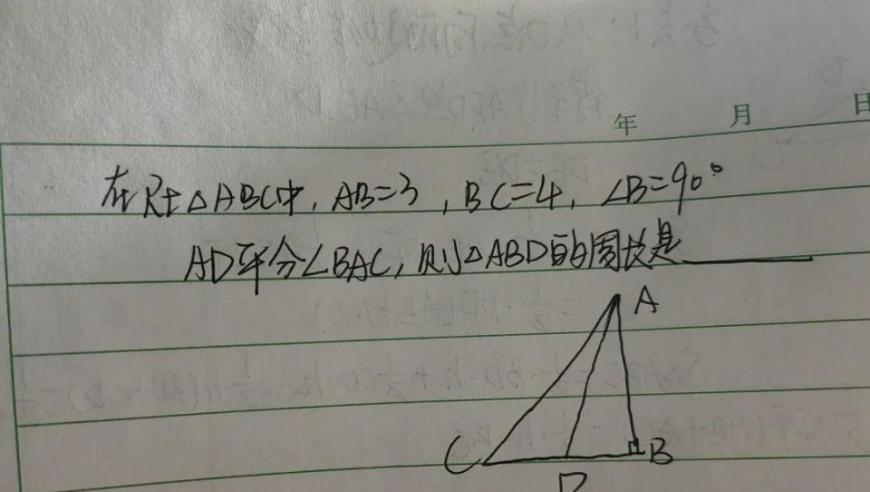 年 月 日
在Rt△ABC中, AB=3, BC=4, ∠B=90°
AD平分∠BAC, 则△ABD的周长是______
A
C B
D